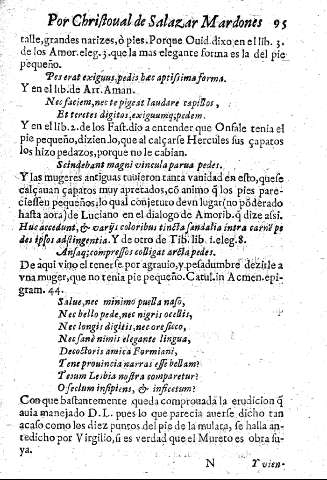 Por Christoual de Salazar Mardones 95
talle, grandes narizes, ò pies. Porque Ouid. dixo en el lib. 3.
de los Amor. eleg. 3. que la mas elegante forma es la del pie
pequeño.
Pes erat exiguus, pedis hæc aptissima forma.
Y en el lib. de Art. Aman.
Nec faciem, nec te pigeat laudare capillos,
Et teretes digitos, exiguumq; pedem.
Y en el lib. 2. de los Fast. dio a entender que Onfale tenia el
pie pequeño, dizienlo, que al calçarse Hercules sus çapatos
los hizo pedazos, porque no le cabian.
Scindebant magni vincula parua pedes.
Y las mugeres antiguas tuuieron tanta vanidad en esto, que se
calçauan çapatos muy apretados, cõ animo q̃ los pies pare-
ciessen pequeños; lo qual conjeturo de vn lugar (no põderado
hasta aora) de Luciano en el dialogo de Amorib. q̃ dize assi.
Huc accedunt, & varijs coloribus tincta sandalia intra carnẽ pe
des ipsos adstingentia. Y de otro de Tib. lib. 1. eleg. 8.
Ansaq; compressos colligat arcta pedes.
De aqui vino el tenerse por agrauio, y pesadumbre dezirle a
vna muger, que no tenia pie pequeño. Catul. in Acmen. epi-
gram. 44.
Salue, nec minimo puella naso,
Nec bello pede, nec nigris ocellis,
Nec longis digitis, nec ore sicco,
Nec sanè nimis elegante lingua,
Decoctoris amica Formiani,
Tene prouincia narras esse bellam?
Tecum Lesbia nostra comparetur?
O seclum insipiens, & inficetum?
Con que bastantemente queda comprouada la erudicion q̃
auia manejado D. L. pues lo que parecia auerse dicho tan
acaso como los diez puntos del pie de la mulata, se halla an-
tedicho por Virgilio, si es verdad que el Mureto es obra su-
ya.
N Y vien-